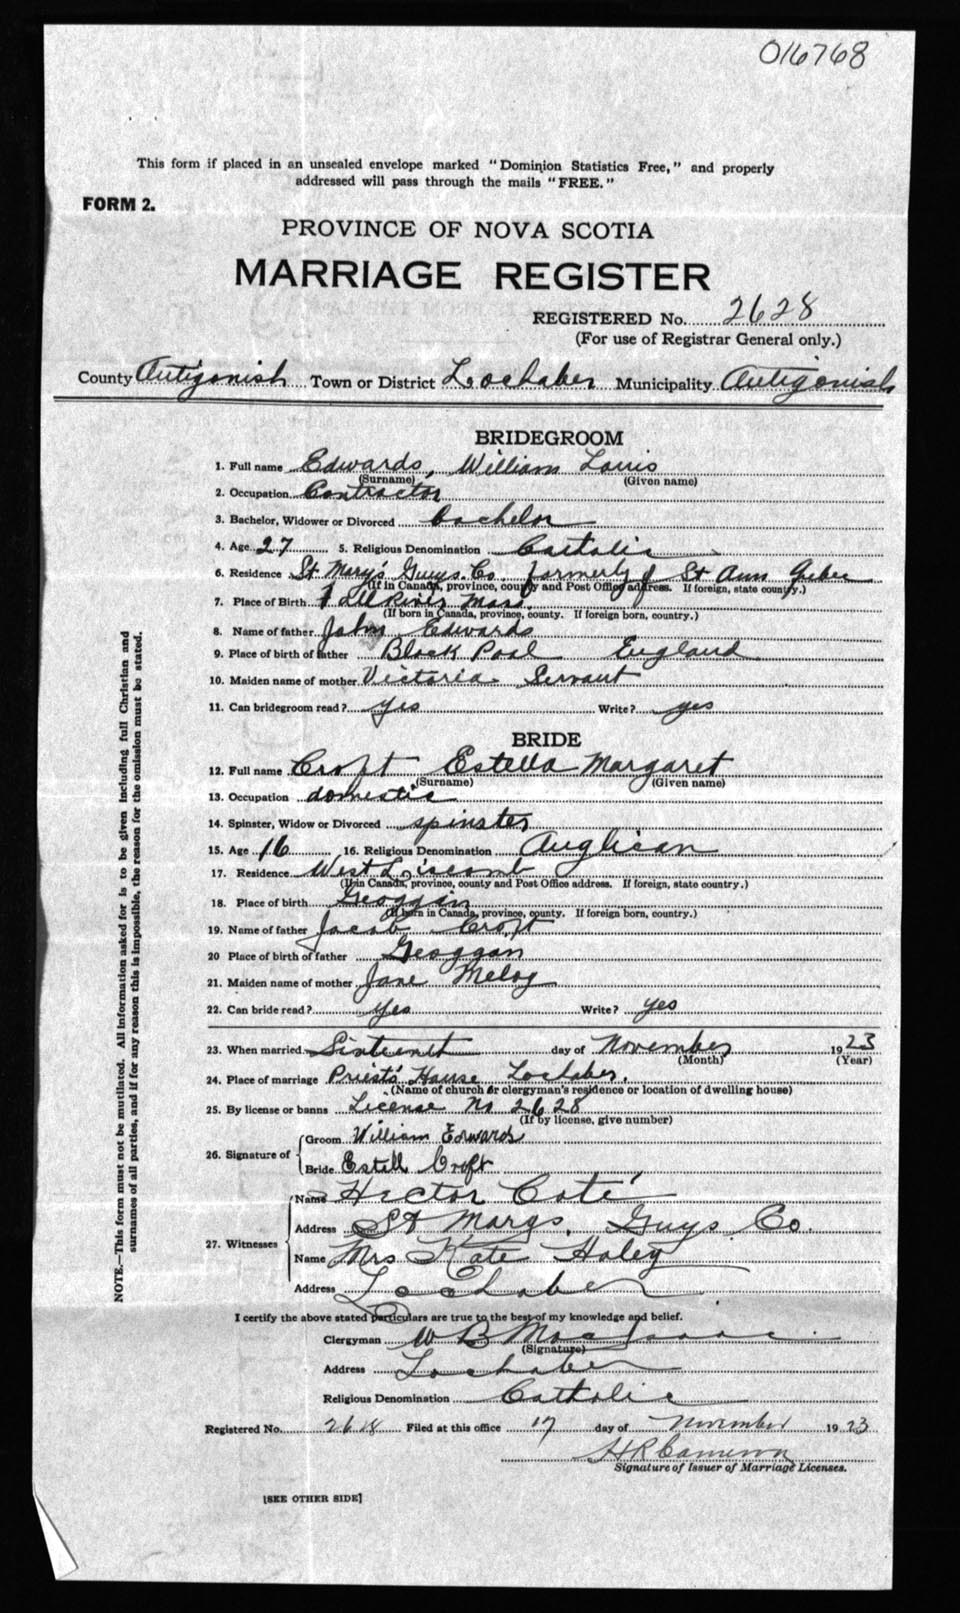 016768
This form if placed in an unsealed envelope marked "Dominion Statistics Free," and properly
addressed will pass through the mails "FREE."
FORM 2.
PROVINCE OF NOVA SCOTIA
MARRIAGE REGISTER
REGISTERED No. 2628
(For use of Registrar General only.)
County Antigonish Town or District Lochaber Municipality Antigonish
BRIDEGROOM
1. Full name Edwards, William Louis
(Surname) (Given name)
2. Occupation Contractor
3. Bachelor, Widower or Divorced bachelor
4. Age 27 5. Religious Denomination Catholic
6. Residence St Mary's Guys. Co formerly of St Ann Quebec
(If in Canada, province, county and Post Office address. If foreign, state country.)
7. Place of Birth River Mass.
(If born in Canada, province, county. If foreign born, country.)
8. Name of father John Edwards
9. Place of birth of father Black Pool England
10. Maiden name of mother Victoria Servant
11. Can bridegroom read? yes Write? yes
BRIDE
12. Full name Croft Estella Margaret
(Surname) (Given name)
13. Occupation domestic
14. Spinster, Widow or Divorced spinster
15. Age 16 16. Religious Denomination Anglican
17. Residence West Liscomb
(If in Canada, province, county and Post Office address. If foreign, state country.)
18. Place of birth Geoggan
(If born in Canada, province, county. If foreign born, country.)
19. Name of father Jacob Croft
20 Place of birth of father Geoggan
21. Maiden name of mother Jane
22. Can bride read? Yes Write? yes
23. When married Sixteenth day of November 1923
(Month) (Year)
24. Place of marriage Priest's House Lochaber.
(Name of church or clergyman's residence or location of dwelling house)
25. By license or banns License No 2628
(If by license, give number)
26. Signature of Groom William Edwards
Bride Estell Croft
27. Witnesses Name Hector Coté
Address St Marys. Guys Co.
Name Mrs Kate Haley
Address Lochaber
I certify the above stated particulars are true to the best of my knowledge and belief.
Clergyman W B MacIsaac
(Signature)
Address Lochaber
Religious Denomination Catholic
Registered No. Filed at this office 17 day of November 1923
HR Cameron
Signature of Issuer of Marriage Licenses.
[SEE OTHER SIDE]
NOTE.—This form must not be mutilated. All information asked for is to be given including full Christian and
surnames of all parties, and if for any reason this is impossible, the reason for the omission must be stated.